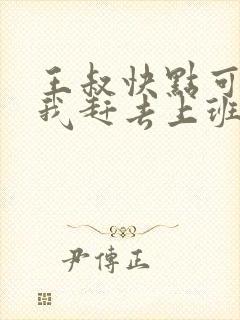 王叔快點可
我赶去上班
尹傳正